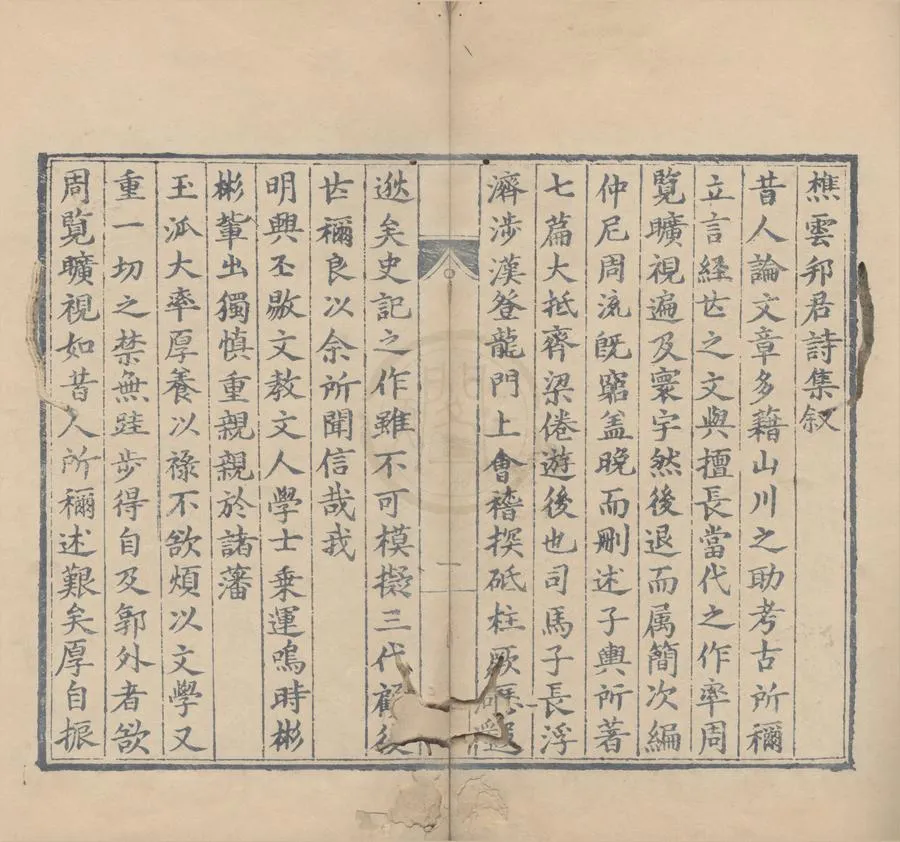 樵雲邦君詩集叙
昔人論文章多籍山川之助考古所穪
立言經世之文與擅長當代之作率周
覽曠視遍及寰宇然後退而属簡次編
仲尼周流旣窮盖晚而刪述子輿所著
七篇大抵齊梁倦遊後也司馬子長浮
濟涉漢登龍門上會稽探砥柱厥
一
逖矣史記之作雖不可模擬三代顧後
世穪良以余所聞信哉我
明興丕敭文教文人學士乗運鳴時彬
彬輩出獨慎重親親於諸藩
玉泒大率厚養以祿不欲煩以文學又
重一切之禁無跬步得自及郭外者欲
周覧曠視如昔人所穪述艱矣厚自振